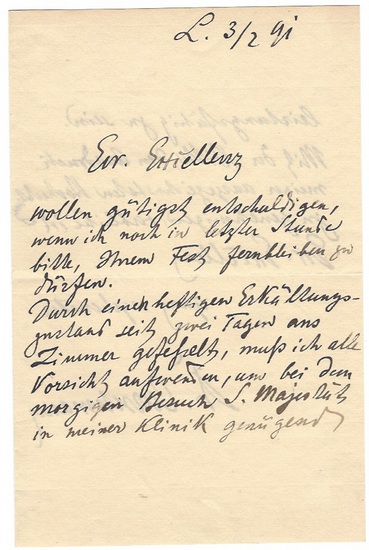 L. 3/2 91
Ew. Excellenz
wollen gütigst entschuldigen,
wenn ich noch in letzter Stunde
bitte, Ihrem Fest fernbleiben zu
dürfen.
Durch einen heftigen Erkältungs-
zustand seit zwei Tagen ans
Zimmer gefesselt, muß ich alle
Vorsicht aufwenden, um bei dem
morgigen Besuch S. Majestät
in meiner Klinik genügend